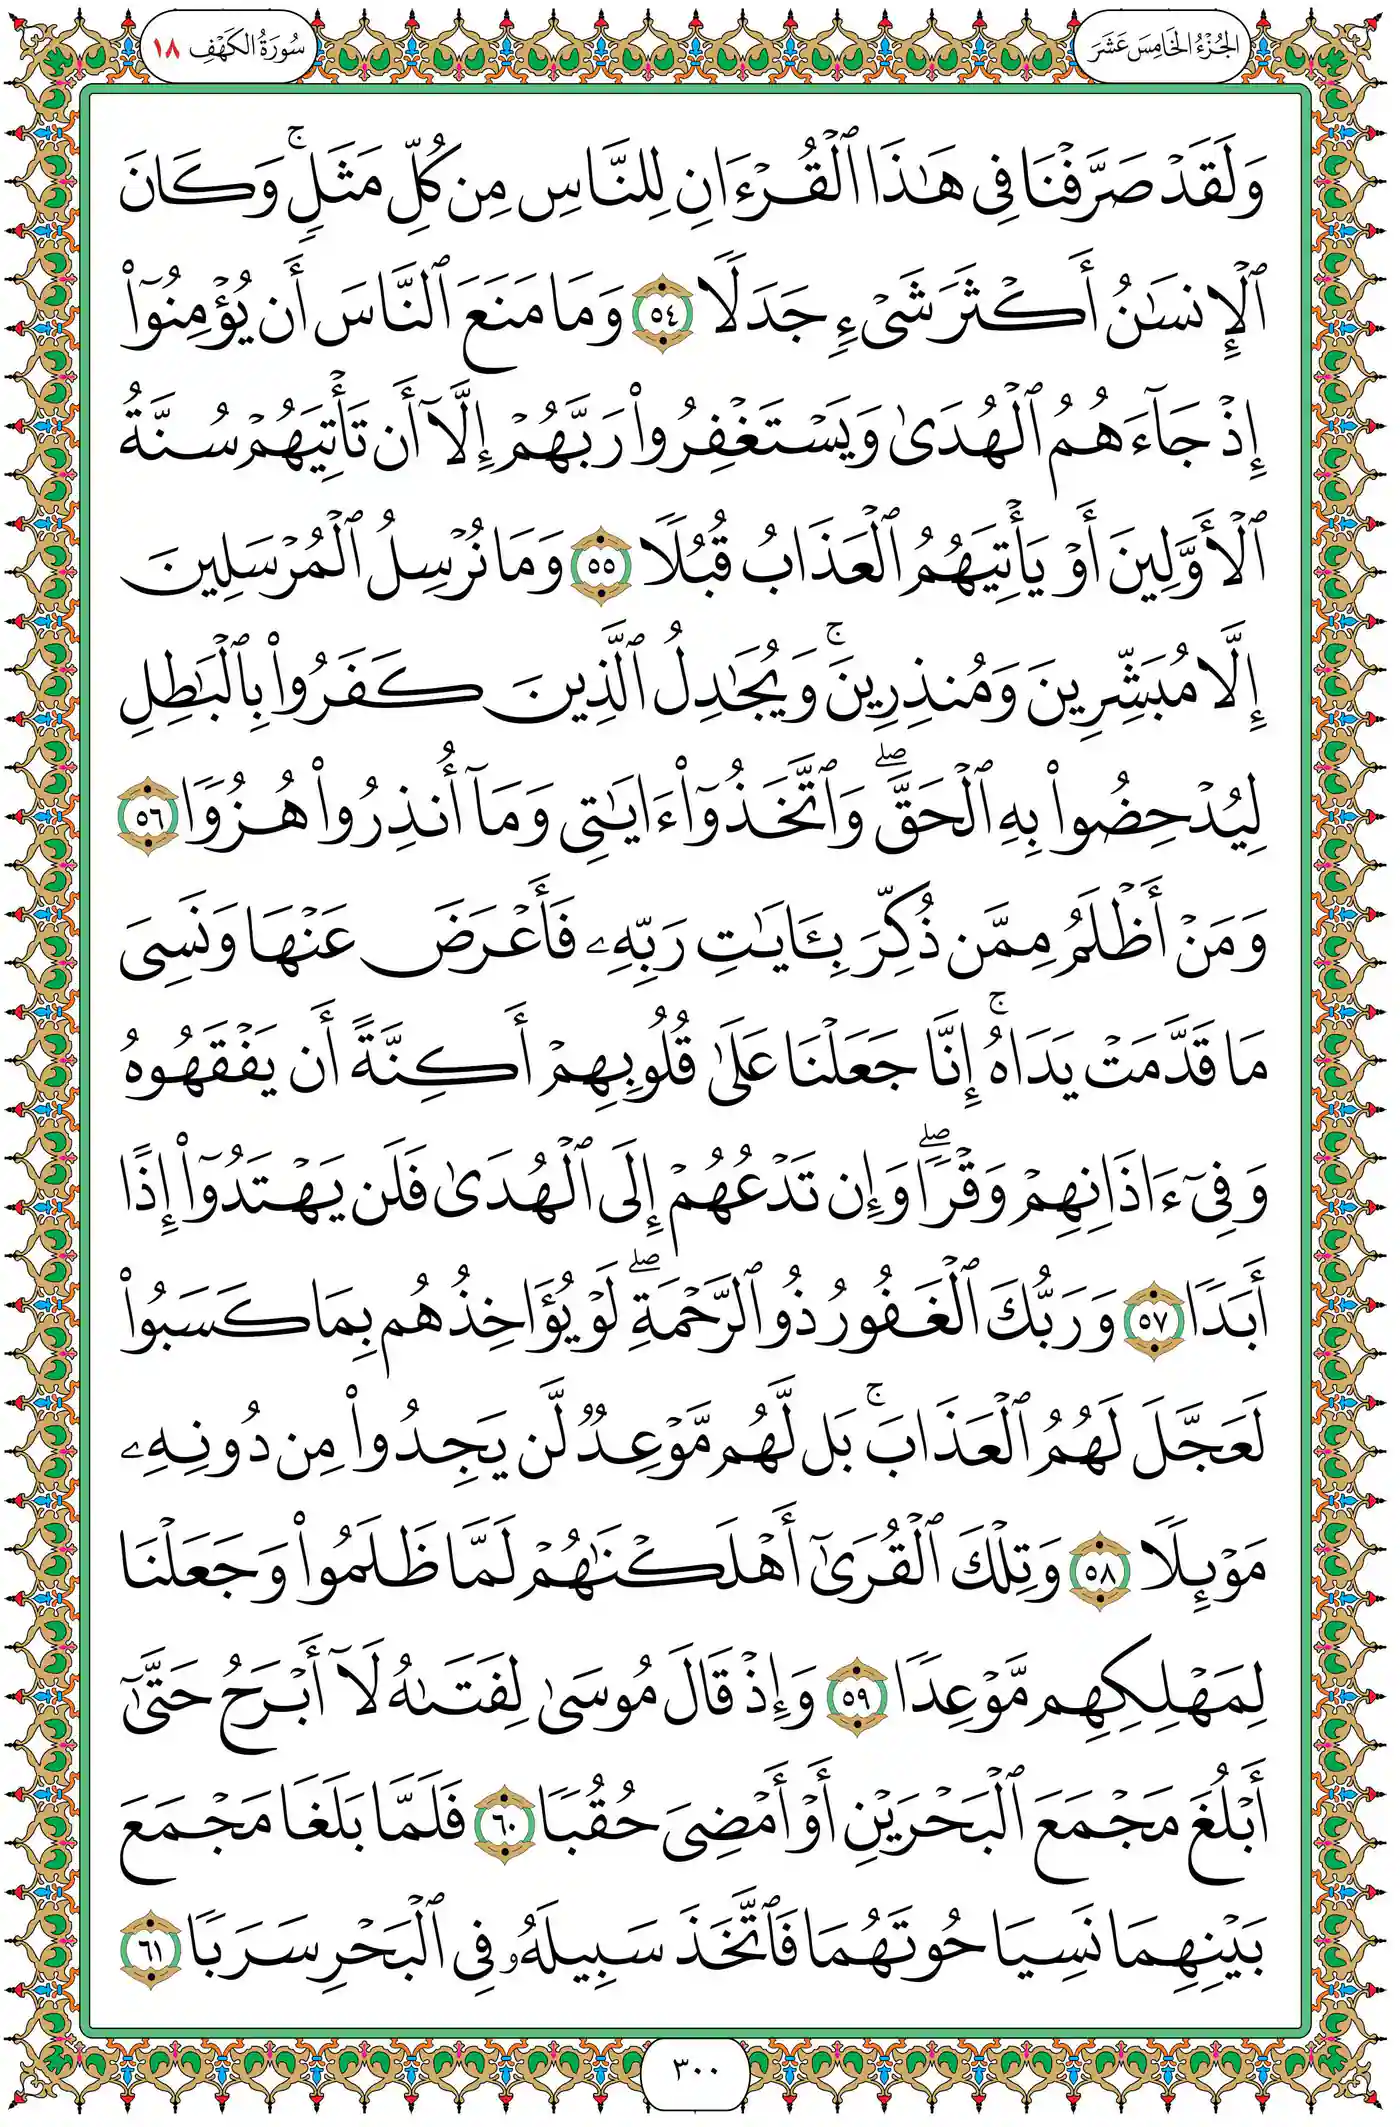 الجُزْءُ الخَامِسَ عَشَرَ
سُورَةُ الكَهْفِ ١٨
وَلَقَدۡ صَرَّفۡنَا فِي هَٰذَا ٱلۡقُرۡءَانِ لِلنَّاسِ مِن كُلِّ مَثَلٖۚ وَكَانَ
ٱلۡإِنسَٰنُ أَكۡثَرَ شَيۡءٖ جَدَلٗا ٥٤ وَمَا مَنَعَ ٱلنَّاسَ أَن يُؤۡمِنُوٓاْ
إِذۡ جَآءَهُمُ ٱلۡهُدَىٰ وَيَسۡتَغۡفِرُواْ رَبَّهُمۡ إِلَّآ أَن تَأۡتِيَهُمۡ سُنَّةُ
ٱلۡأَوَّلِينَ أَوۡ يَأۡتِيَهُمُ ٱلۡعَذَابُ قُبُلٗا ٥٥ وَمَا نُرۡسِلُ ٱلۡمُرۡسَلِينَ
إِلَّا مُبَشِّرِينَ وَمُنذِرِينَۚ وَيُجَٰدِلُ ٱلَّذِينَ كَفَرُواْ بِٱلۡبَٰطِلِ
لِيُدۡحِضُواْ بِهِ ٱلۡحَقَّۖ وَٱتَّخَذُوٓاْ ءَايَٰتِي وَمَآ أُنذِرُواْ هُزُوٗا ٥٦
وَمَنۡ أَظۡلَمُ مِمَّن ذُكِّرَ بِـَٔايَٰتِ رَبِّهِۦ فَأَعۡرَضَ عَنۡهَا وَنَسِيَ
مَا قَدَّمَتۡ يَدَاهُۚ إِنَّا جَعَلۡنَا عَلَىٰ قُلُوبِهِمۡ أَكِنَّةً أَن يَفۡقَهُوهُ
وَفِيٓ ءَاذَانِهِمۡ وَقۡرٗاۖ وَإِن تَدۡعُهُمۡ إِلَى ٱلۡهُدَىٰ فَلَن يَهۡتَدُوٓاْ إِذًا
أَبَدٗا ٥٧ وَرَبُّكَ ٱلۡغَفُورُ ذُو ٱلرَّحۡمَةِۖ لَوۡ يُؤَاخِذُهُم بِمَا كَسَبُواْ
لَعَجَّلَ لَهُمُ ٱلۡعَذَابَۚ بَل لَّهُم مَّوۡعِدٞ لَّن يَجِدُواْ مِن دُونِهِۦ
مَوۡئِلٗا ٥٨ وَتِلۡكَ ٱلۡقُرَىٰٓ أَهۡلَكۡنَٰهُمۡ لَمَّا ظَلَمُواْ وَجَعَلۡنَا
لِمَهۡلِكِهِم مَّوۡعِدٗا ٥٩ وَإِذۡ قَالَ مُوسَىٰ لِفَتَىٰهُ لَآ أَبۡرَحُ حَتَّىٰٓ
أَبۡلُغَ مَجۡمَعَ ٱلۡبَحۡرَيۡنِ أَوۡ أَمۡضِيَ حُقُبٗا ٦٠ فَلَمَّا بَلَغَا مَجۡمَعَ
بَيۡنِهِمَا نَسِيَا حُوتَهُمَا فَٱتَّخَذَ سَبِيلَهُۥ فِي ٱلۡبَحۡرِ سَرَبٗا ٦١
٣٠٠